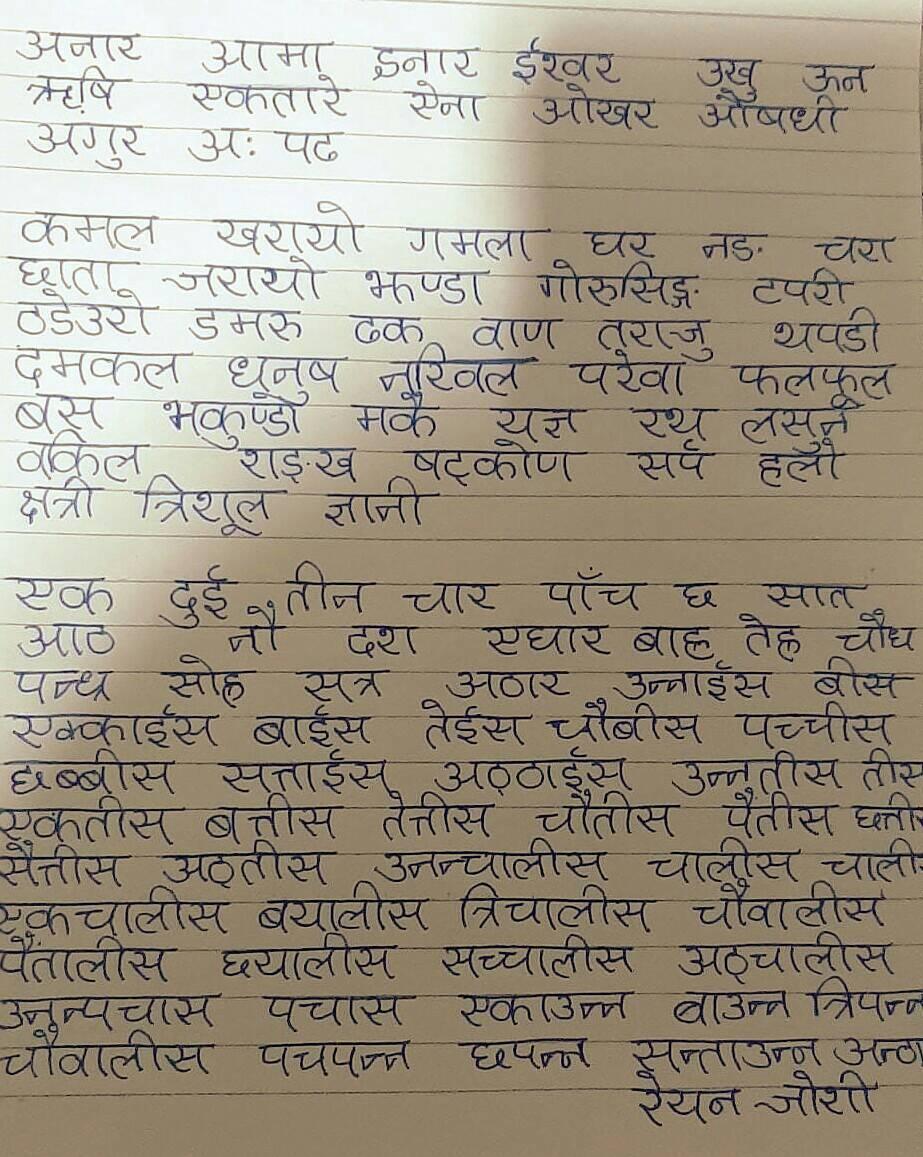 अनार आमा इनार ईश्वर उखु ऊन
ऋषि एकतारे ऐना ओखर औषधी
अगुर अः पढ
कमल खरायो गमला घर नङ चरा
छाता जरायो झण्डा गोरुसिङ्ग टपरी
ठडेउरो डमरु ढक वाण तराजु थपडी
दमकल धनुष नरिवल परेवा फलफूल
बस भकुण्डो मकै यज्ञ रथ लसुन
वकिल शङ्ख षट्कोण सर्प हलो
क्षत्री त्रिशूल ज्ञानी
एक दुई तीन चार पाँच छ सात
आठ नौ दश एघार बाह्र तेह्र चौध
पन्ध्र सोह्र सत्र अठार उन्नाईस बीस
एक्काईस बाईस तेईस चौबीस पच्चीस
छब्बीस सत्ताईस अठ्ठाईस उन्नतीस तीस
एकतीस बत्तीस तेत्तीस चौतीस पैतीस छत्तीस
सैत्तीस अठ्तीस उनन्चालीस चालीस चाली
एकचालीस बयालीस त्रिचालीस चौवालीस
पैंतालीस छयालीस सच्चालीस अठ्चालीस
उनन्पचास पचास एकाउन्न बाउन्न त्रिपन्न
चौवालीस पचपन्न छपन्न सन्ताउन्न अन्ठा
रेयन जोशी